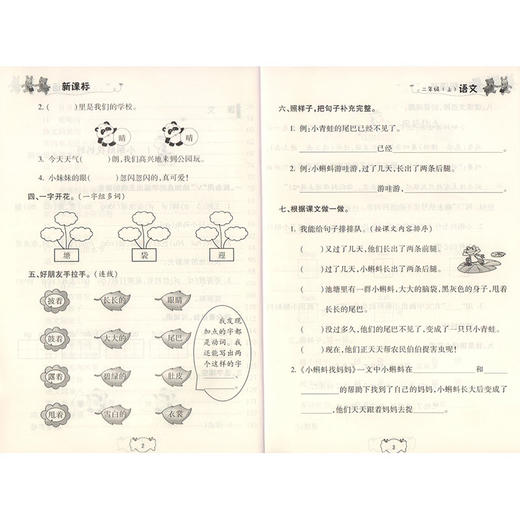 新课标
2. (　　)里是我们的学校。
晴　睛
3. 今天天气(　　)朗,我们高兴地来到公园玩。
4. 小妹妹的眼(　　)忽闪忽闪的,真可爱!
四、一字开花。(一字组多词)
塘　袋　迎
五、好朋友手拉手。(连线)
披着　长长的　眼睛
鼓着　大大的　尾巴
露着　碧绿的　肚皮
甩着　雪白的　衣裳
我发现
加点的字都
是动词。我
还能写出两
个这样的字
2
二年级(上)　语文
六、照样子,把句子补充完整。
1. 例:小青蛙的尾巴已经不见了。
已经
2. 例:小蝌蚪游哇游,过了几天,长出了两条后腿。
游哇游,
七、根据课文做一做。
1. 我能给句子排排队。(按课文内容排序)
(　　)又过了几天,他们长出了两条前腿。
(　　)过了几天,小蝌蚪长出了两条后腿。
(　　)池塘里有一群小蝌蚪,大大的脑袋,黑灰色的身子,甩着
长长的尾巴。
(　　)没过多久,他们的尾巴不见了,变成了一只只小青蛙。
(　　)他们正天天帮农民伯伯捉害虫呢!
2. 《小蝌蚪找妈妈》一文中小蝌蚪在　　和
的帮助下找到了自己的妈妈,小蝌蚪长大后变成了
,他们天天跟着妈妈去捉　　。
3